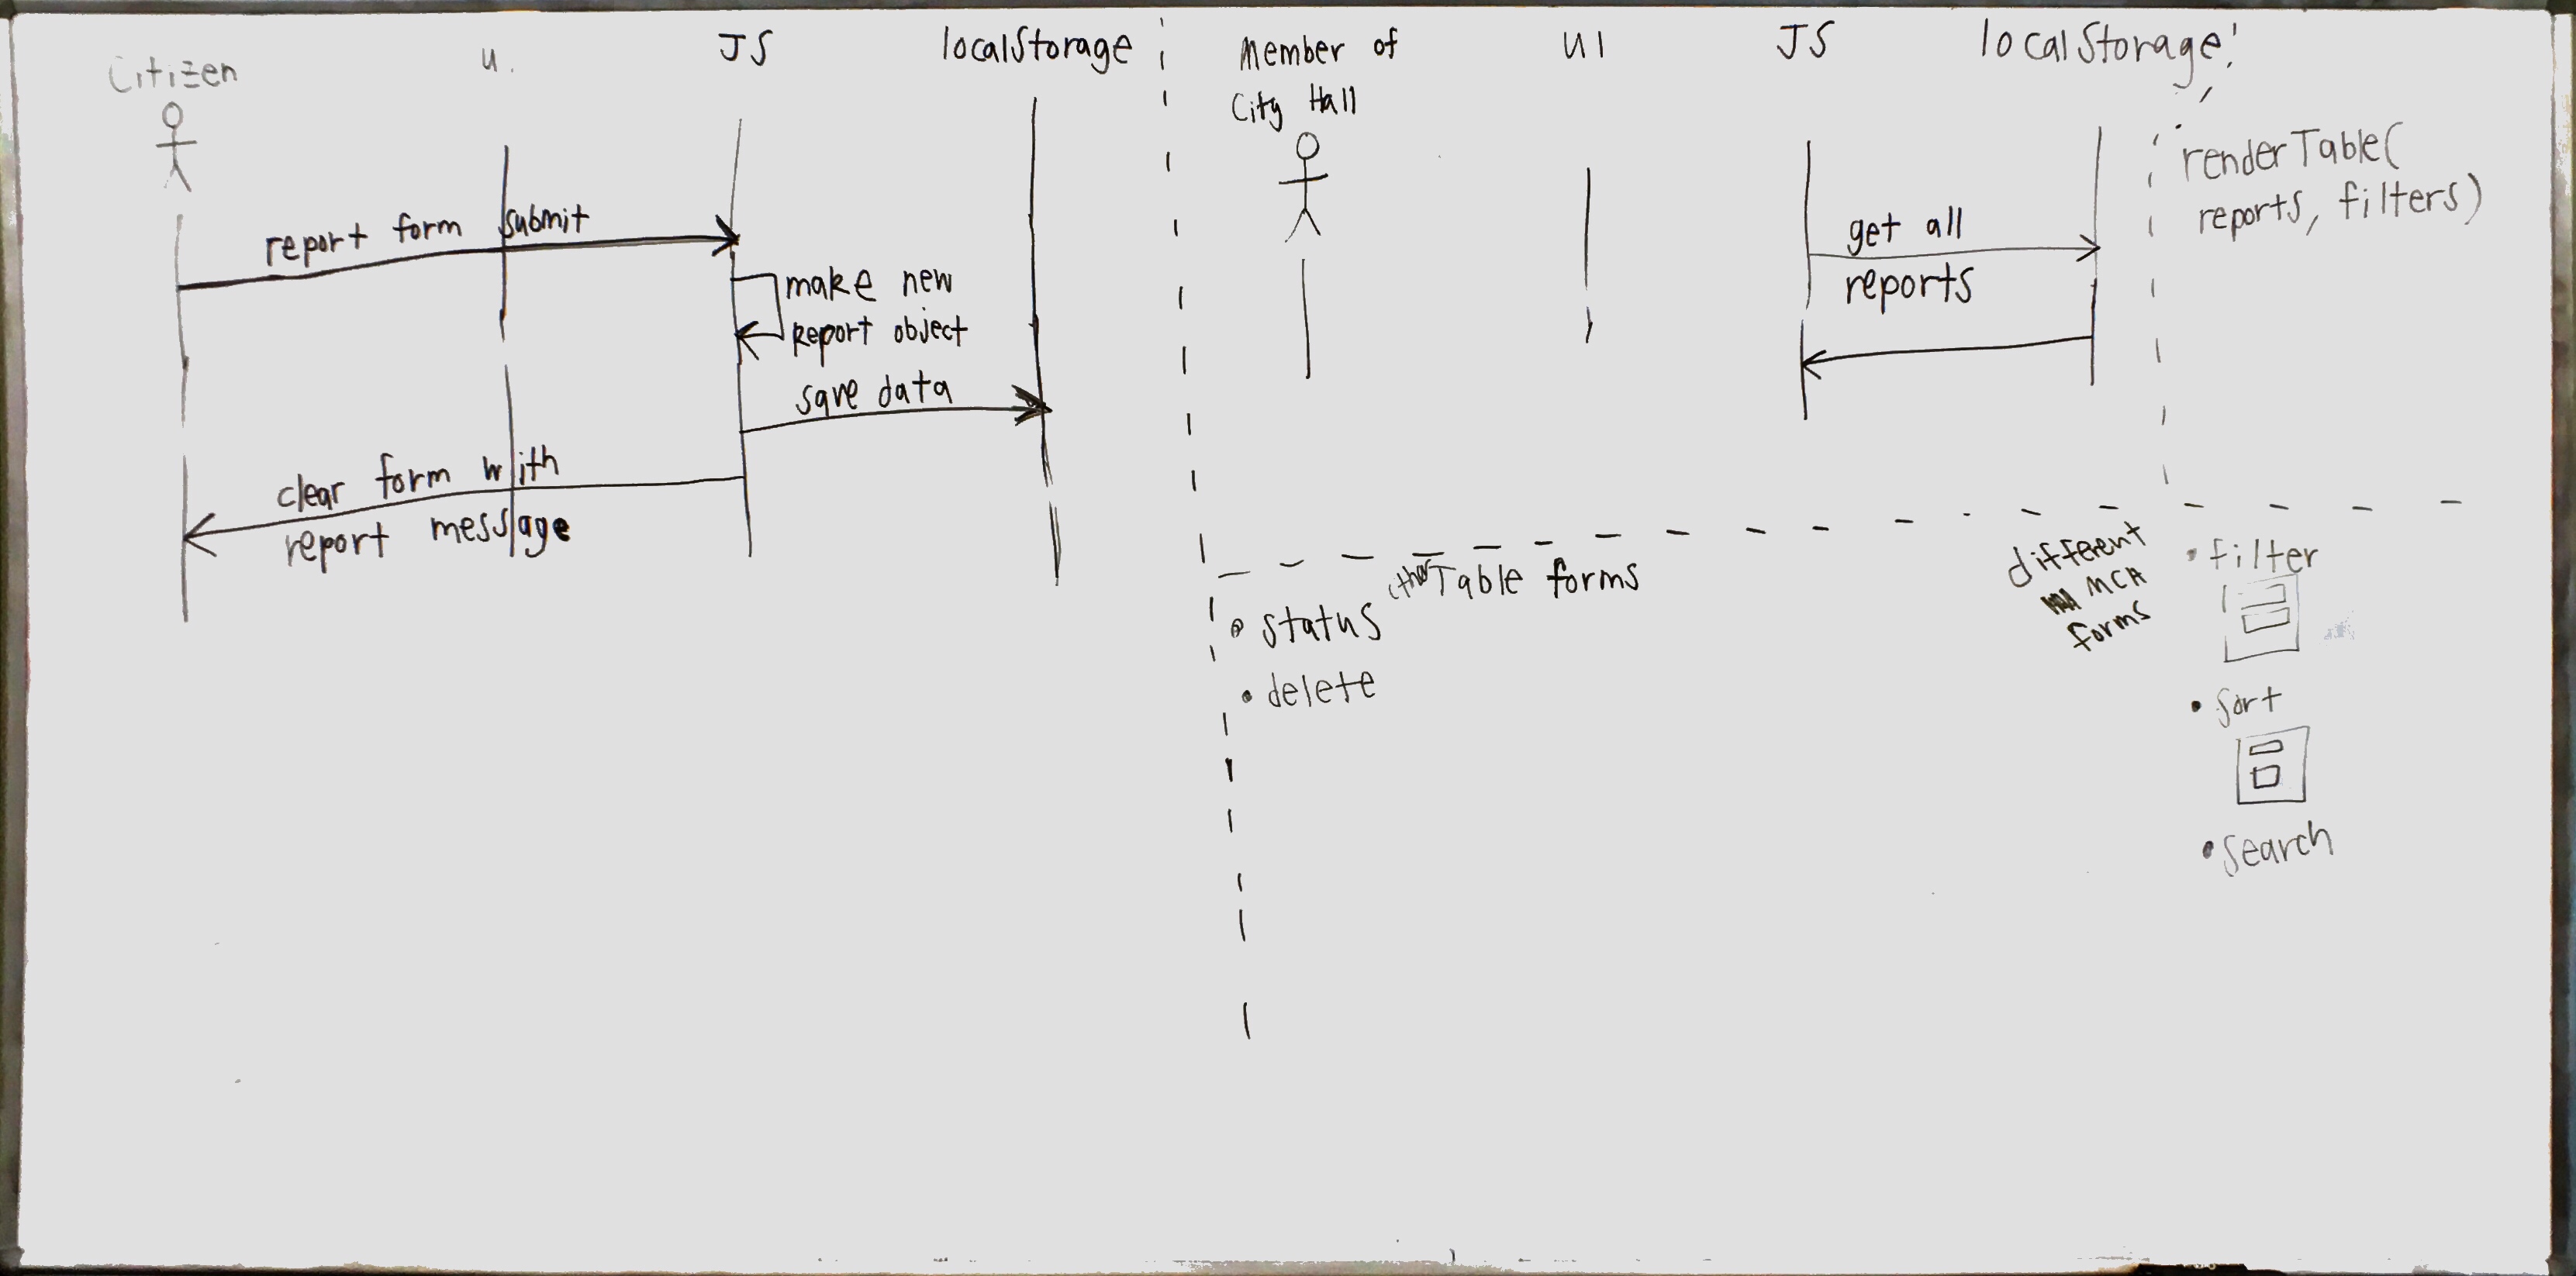 Citizen
U.
JS
localStorage
report form submit
make new
report object
save data
clear form with
report message
Member of
City Hall
UI
JS
localStorage
get all
reports
renderTable(
reports, filters)
Table forms
• status
• delete
different
forms
• filter
• sort
• search